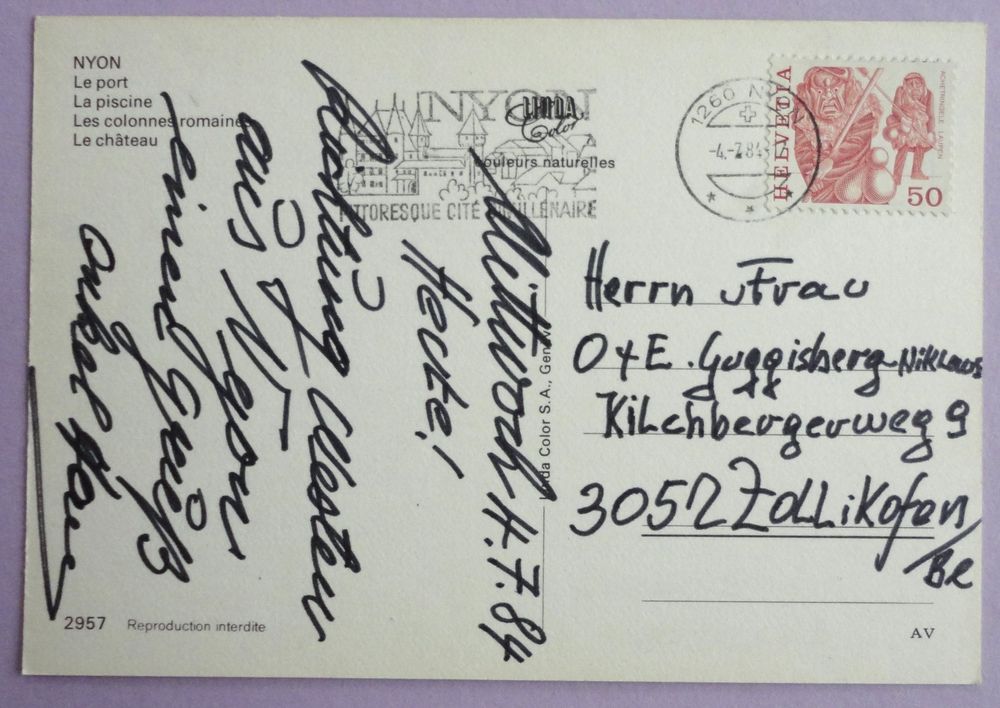 NYON
Le port
La piscine
Les colonnes romaines
Le château
NYON
LINDA
Color
Couleurs naturelles
PITTORESQUE CITÉ BIMILLÉNAIRE
1260 NYON
-4.-7.84
HELVETIA
ACHETRINGELE LAUPEN
50
Mittwoch 4.7.84
Heute!
Richtung Westen
aus Nyon
einen Gruß
Onkel
Herrn u Frau
O+E. Guggisberg-Niklaus
Kilchbergerweg 9
3052 Zollikofen
/Be
Linda Color S.A., Genève
2957 Reproduction interdite
AV